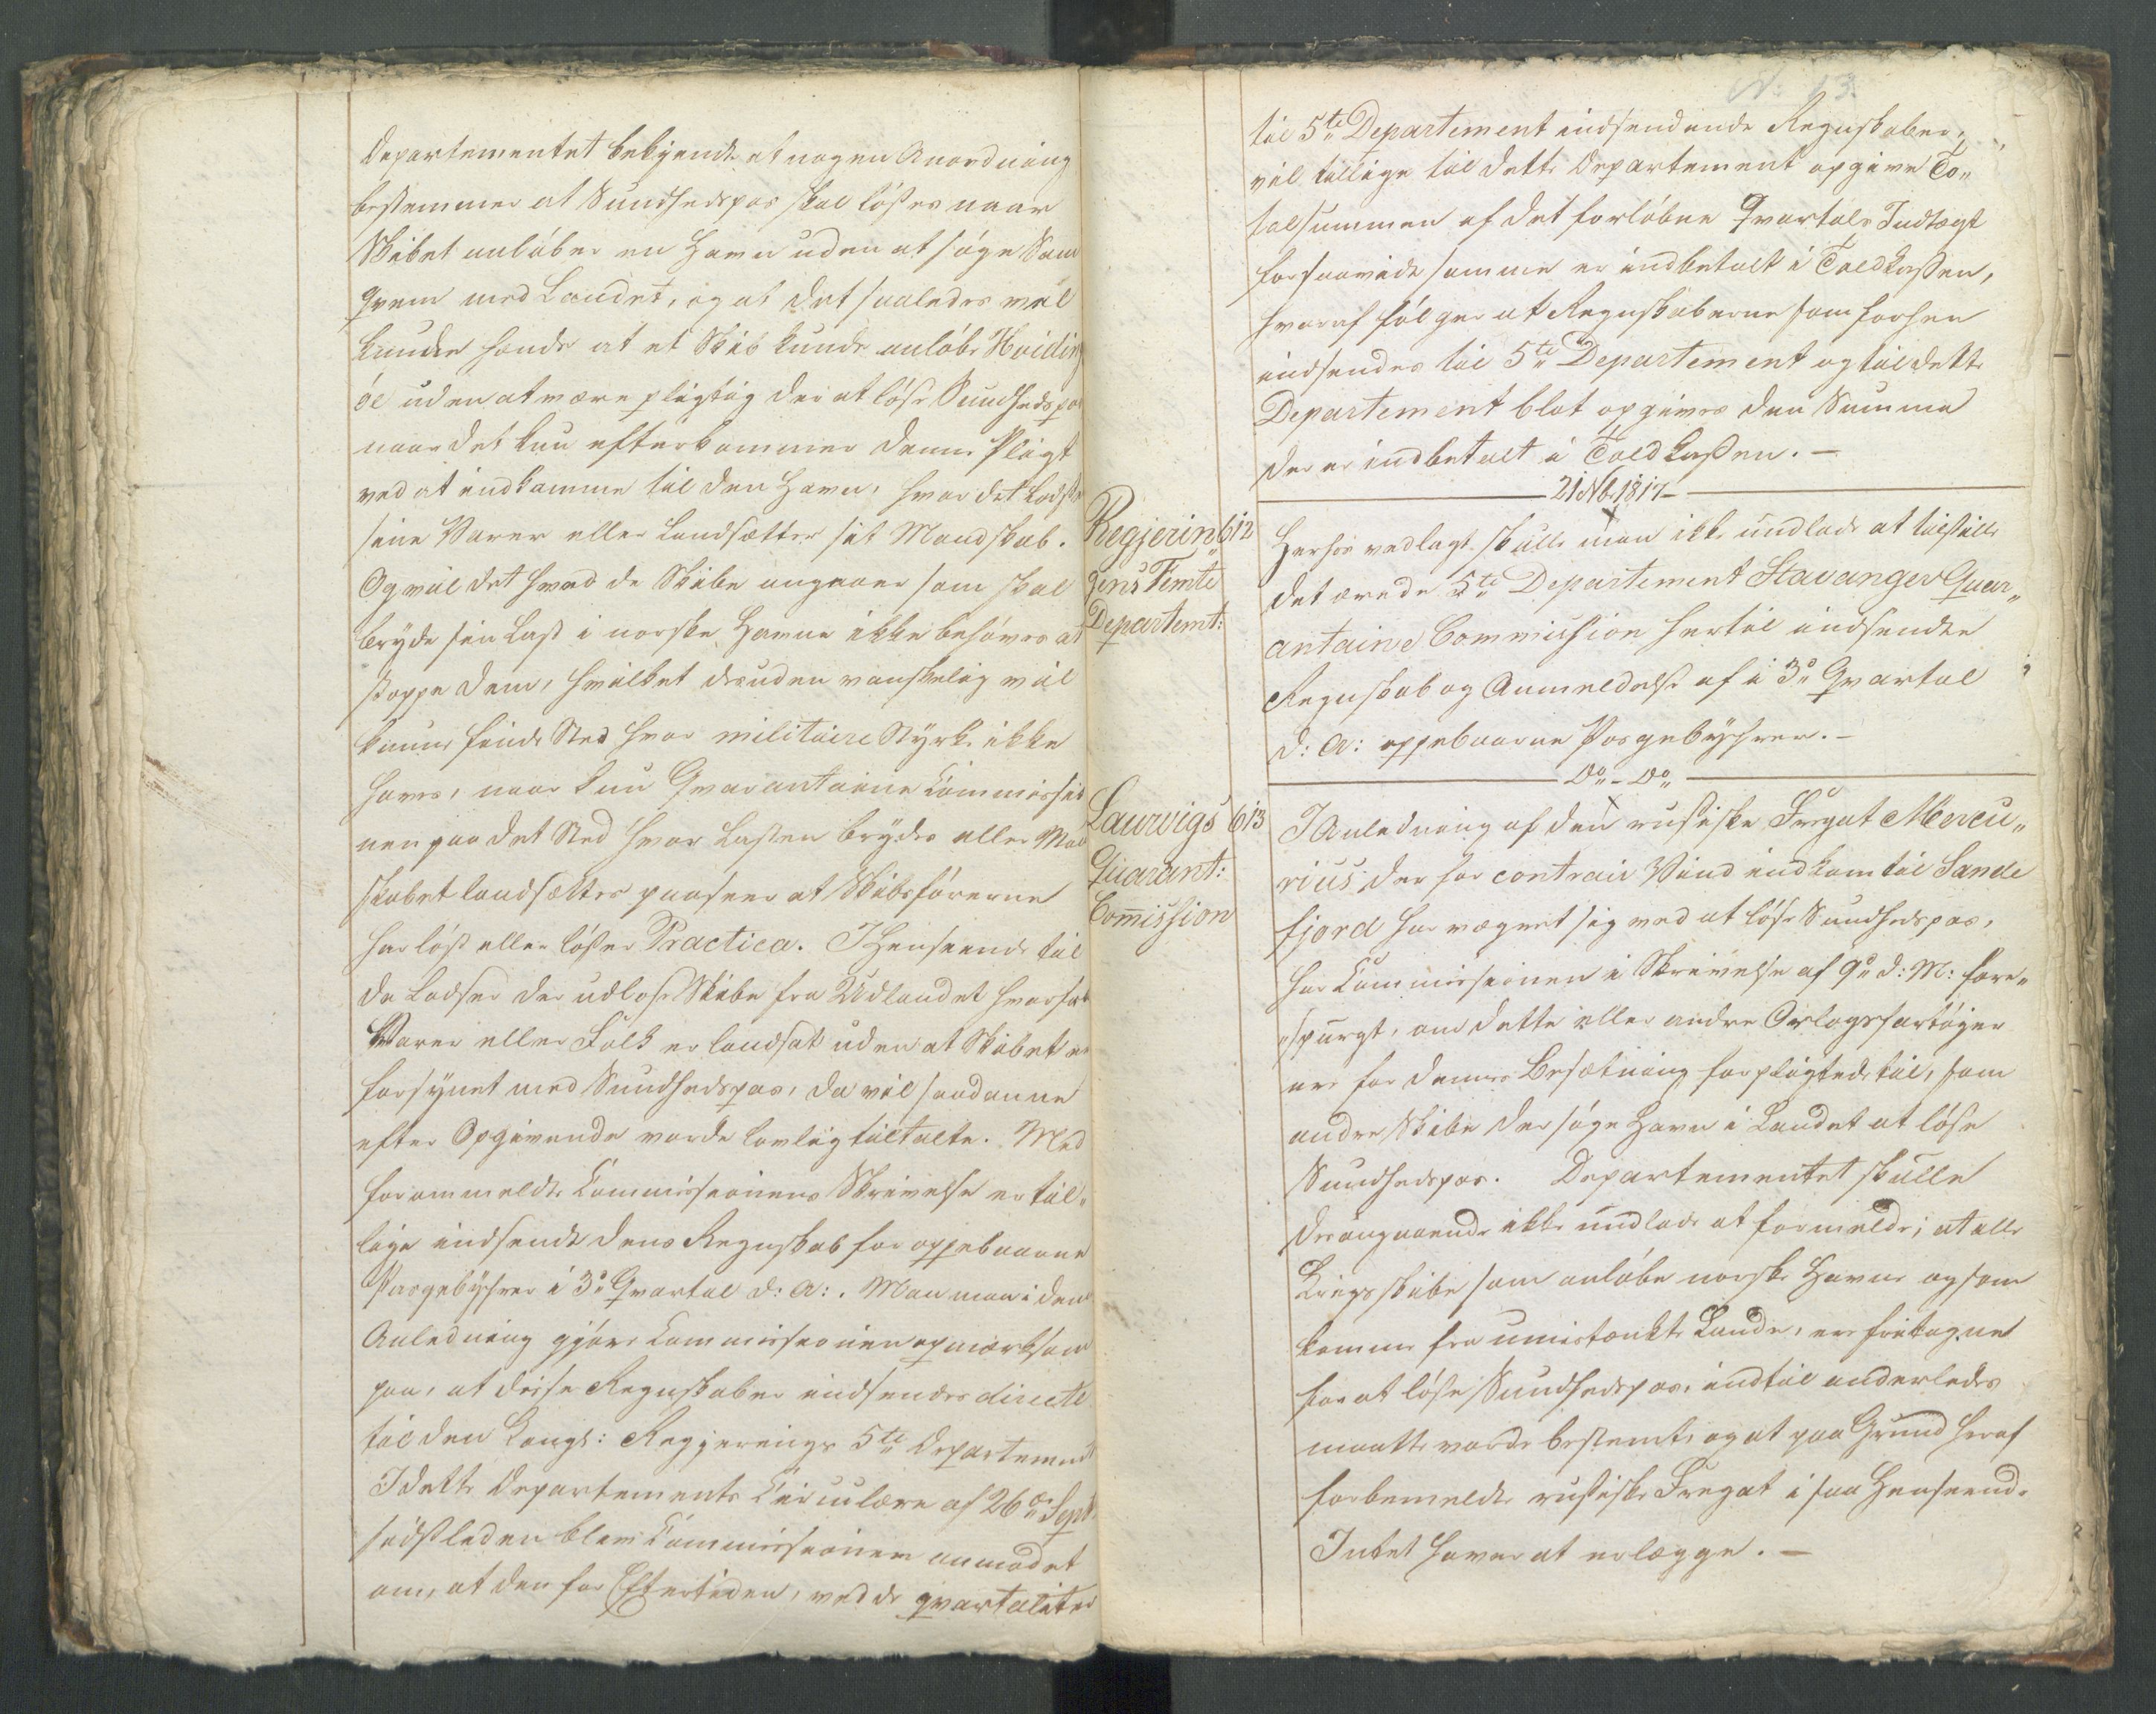 Departementet bekjendt at nogen Anordning
bestemmer at Sundhedspas skal løses naar
Skibet anløber en Havn uden at søge Sam
qvem med Landet, og at det saaledes vel
kunde hænde at et Skib kunde anløbe Hviding
öe uden at være pligtig der at løse Sundhedspas
naar det kun efterkommer denne Pligt
ved at indkomme til den Havn, hvor det losse
sine Varer eller landsætter sit Mandskab.
Og vil det hvad de Skibe angaaer som skal
bryde sin Last i norske Havne ikke behøves at
stoppe dem, hvilket desuden vanskelig vil
kunne finde Sted hvor militaire Styrke ikke
haves, naar kun Qvarantaine Commissio
nen paa det Sted hvor Lasten brydes eller Mand
skabet landsættes paaseer at Skibsførerne
har løst eller løser Practica. I Henseende til
de Lodser der udlose Skibe fra Udlandet hvorfra
Varer eller Folk er landsat uden at Skibet er
forsynet med Sundhedspas, da vil saadanne
efter Opgivende vorde lovlig tiltalte. Med
forommeldte Commissionens Skrivelse er til„
lige indsendt dens Regnskab for oppebaarne
Pasgebyhrer i 3d Qvartal d: A:. Man maa i den
Anledning gjøre Commissionen opmærksom
paa, at disse Regnskaber indsendes directe
til den Kongl: Regjerings 5te Departement
I dette Departements Circulære af 26de Sept.
sidstleden blev Commissionen anmodet
om, at den for Eftertiden, ved de qvartaliter
N: 13
til 5te Departement indsendende Regnskaber,
vil tillige til dette Departement opgive To„
talsummen af det forløbne Qvartals Indtægt
forsaavidt samme er indbetalt i Toldkassen,
hvoraf følger at Regnskaberne som forhen
indsendes til 5te Departement og til dette
Departement blot opgives den Summa
der er indbetalt i Toldkassen. —
21 Nbr 1817 —
Regjerin„ 612
gens Femte
Departemt:
Herhos vedlagt skulle man ikke undlade at tilstille
det ærede 5te Departement Stavanger Quar„
antaine Commission hertil indsendte
Regnskab og Anmeldelse af i 3d Qvartal
d: A: oppebaarne Pasgebyhrer. —
Do — Do
Laurvigs 613
Quarant:
Commission
I Anledning af den russiske Fregat Mercu„
rius der for contrair Vind indkom til Sande
fjord har vægret sig ved at løse Sundhedspas,
har Commissionen i Skrivelse af 9de d: M: fore„
„spurgt, om dette eller andre Orlogsfartøier
ere for dennes Besætning forpligtede til, som
andre Skibe der søge Havn i Landet at løse
Sundhedspas. Departementet skulle
desangaaende ikke undlade at formelde; at alle
Krigsskibe som anløbe norske Havne og som
komme fra umistænkte Lande, ere fritagne
for at løse Sundhedspas, indtil anderledes
maatte vorde bestemt, og at paa Grund heraf
forbemeldte russiske Fregat i saa Henseende
Intet haver at erlægge. —